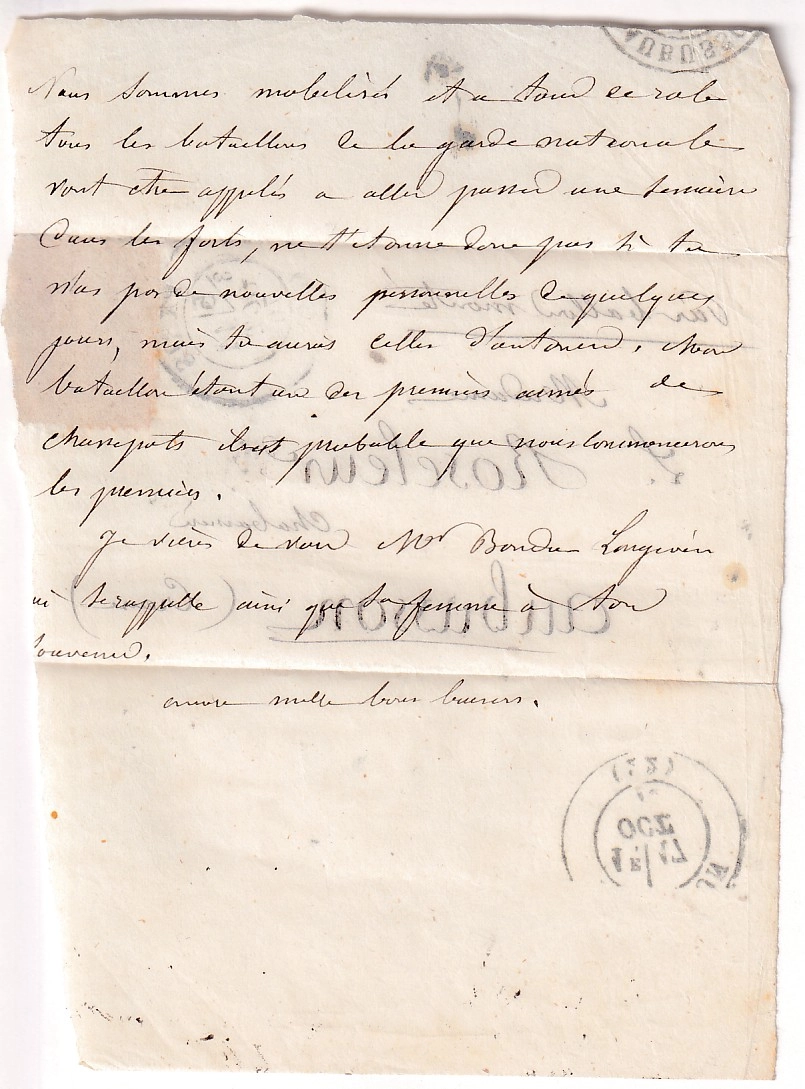 AUBUSSO
Nous sommes mobilisés et a tour de role
tous les bataillons de la garde nationale
vont être appelés a aller passer une semaine
dans les forts, ne t'etonne donc pas si tu
n'as pas de nouvelles personnelles de quelques
jours, mais tu auras celles d'antonin. Mon
bataillon étant un des premiers armés de
chassepots il est probable que nous commencerons
les premiers.
Je viens de voir Mr
ui se rappelle ainsi que sa femme à ton
souvenir.
encore mille bons baisers.
Par ballon monté
Madame
L. Roseleur
aubusson
(22)
OCT
17